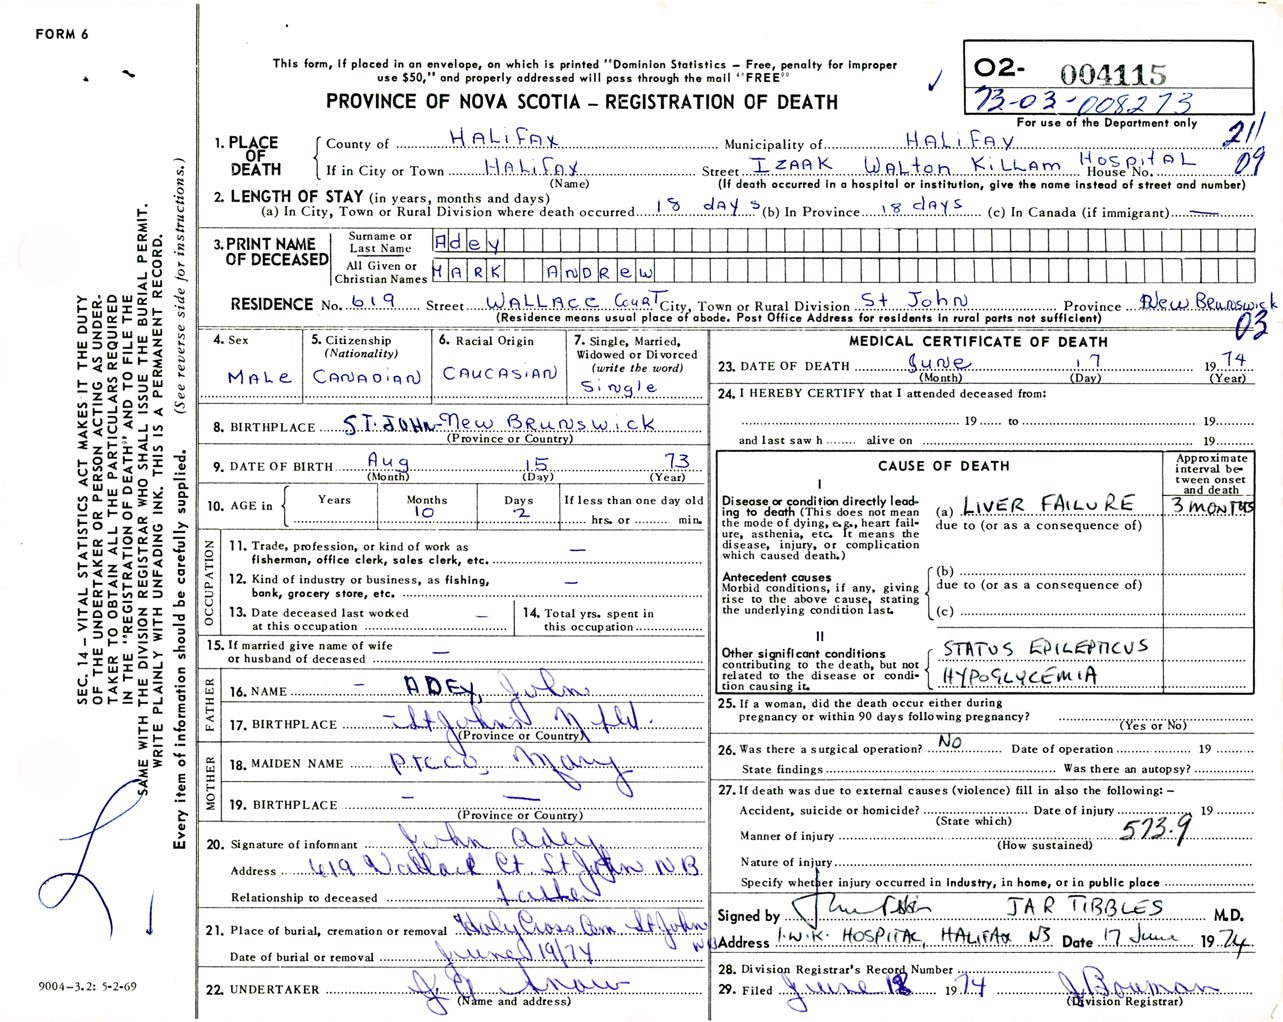 FORM 6
This form, if placed in an envelope, on which is printed "Dominion Statistics – Free, penalty for improper
use $50," and properly addressed will pass through the mail "FREE"
PROVINCE OF NOVA SCOTIA – REGISTRATION OF DEATH
02- 004115
73-03-008273
For use of the Department only
211
09
1. PLACE OF DEATH
County of HALIFAX Municipality of HALIFAX
If in City or Town HALIFAX Street IZAAK WALTON KILLAM HOSPITAL House No.
(Name) (If death occurred in a hospital or institution, give the name instead of street and number)
2. LENGTH OF STAY (in years, months and days)
(a) In City, Town or Rural Division where death occurred 18 days (b) In Province 18 days (c) In Canada (if immigrant) —
3. PRINT NAME OF DECEASED
Surname or Last Name Adey
All Given or Christian Names MARK ANDREW
RESIDENCE No. 619 Street WALLACE COURT City, Town or Rural Division St John Province New Brunswick
(Residence means usual place of abode. Post Office Address for residents in rural parts not sufficient)
03
4. Sex MALE
5. Citizenship (Nationality) CANADIAN
6. Racial Origin CAUCASIAN
7. Single, Married, Widowed or Divorced (write the word) Single
8. BIRTHPLACE ST. JOHN-New Brunswick
(Province or Country)
9. DATE OF BIRTH Aug 15 73
(Month) (Day) (Year)
10. AGE in Years Months 10 Days 2 If less than one day old hrs. or min.
OCCUPATION
11. Trade, profession, or kind of work as fisherman, office clerk, sales clerk, etc. —
12. Kind of industry or business, as fishing, bank, grocery store, etc. —
13. Date deceased last worked at this occupation —
14. Total yrs. spent in this occupation
15. If married give name of wife or husband of deceased —
FATHER
16. NAME – ADEY, John
17. BIRTHPLACE – St John's Nfld.
(Province or Country)
MOTHER
18. MAIDEN NAME Mary
19. BIRTHPLACE — —
(Province or Country)
20. Signature of informant John Adey
Address 619 Wallace Ct. St John NB
Relationship to deceased father
21. Place of burial, cremation or removal Holy Cross Cem St John NB
Date of burial or removal June 19/74
22. UNDERTAKER Snow
(Name and address)
MEDICAL CERTIFICATE OF DEATH
23. DATE OF DEATH June 17 1974
(Month) (Day) (Year)
24. I HEREBY CERTIFY that I attended deceased from:
19 to 19
and last saw h alive on 19
CAUSE OF DEATH
Approximate interval between onset and death
I
Disease or condition directly leading to death (This does not mean the mode of dying, e.g., heart failure, asthenia, etc. It means the disease, injury, or complication which caused death.)
(a) LIVER FAILURE 3 MONTHS
due to (or as a consequence of)
Antecedent causes
Morbid conditions, if any, giving rise to the above cause, stating the underlying condition last.
(b)
due to (or as a consequence of)
(c)
II
Other significant conditions contributing to the death, but not related to the disease or condition causing it.
STATUS EPILEPTICUS
HYPOGLYCEMIA
25. If a woman, did the death occur either during pregnancy or within 90 days following pregnancy?
(Yes or No)
26. Was there a surgical operation? No Date of operation 19
State findings Was there an autopsy?
27. If death was due to external causes (violence) fill in also the following: –
Accident, suicide or homicide? Date of injury 19
(State which)
573.9
Manner of injury
(How sustained)
Nature of injury
Specify whether injury occurred in industry, in home, or in public place
Signed by JAR TIBBLES M.D.
Address I.W.K. HOSPITAL, HALIFAX NS Date 17 June 1974
28. Division Registrar's Record Number
29. Filed June 18 1974 J Bowman
(Division Registrar)
SEC. 14 – VITAL STATISTICS ACT MAKES IT THE DUTY
OF THE UNDERTAKER OR PERSON ACTING AS UNDERTAKER TO OBTAIN ALL THE PARTICULARS REQUIRED
IN THE "REGISTRATION OF DEATH" AND TO FILE THE
SAME WITH THE DIVISION REGISTRAR WHO SHALL ISSUE THE BURIAL PERMIT.
WRITE PLAINLY WITH UNFADING INK. THIS IS A PERMANENT RECORD.
Every item of information should be carefully supplied. (See reverse side for instructions.)
9004-3.2: 5-2-69